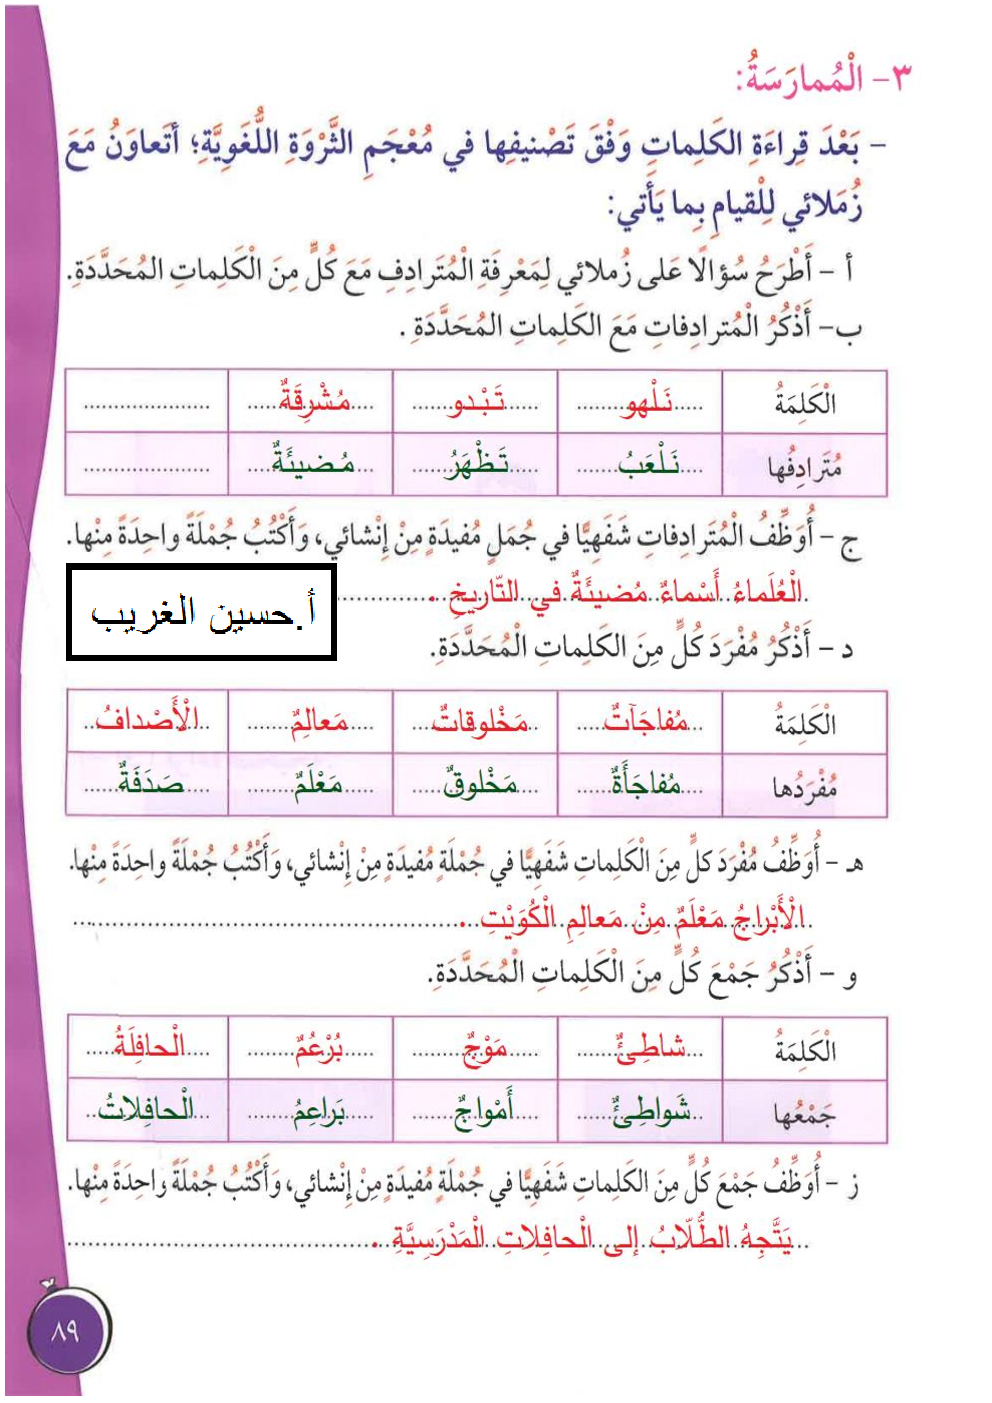 ٣- الْمُمارَسَةُ:
- بَعْدَ قِراءَةِ الكَلِماتِ وَفْقَ تَصْنيفِها في مُعْجَمِ الثَّرْوَةِ اللُّغَوِيَّةِ؛ أَتَعاوَنُ مَعَ
زُمَلائي لِلْقيامِ بِما يَأْتي:
أ - أَطْرَحُ سُؤالًا عَلى زُملائي لِمَعْرِفَةِ الْمُتَرادِفِ مَعَ كُلٍّ مِنَ الْكَلِماتِ المُحَدَّدَةِ.
ب- أَذْكُرُ الْمُترادِفاتِ مَعَ الكَلِماتِ المُحَدَّدَةِ .
الْكَلِمَةُ نَلْهو تَبْدو مُشْرِقَةٌ
مُتَرادِفُها نَلْعَبُ تَظْهَرُ مُضيئَةٌ
ج - أُوَظِّفُ الْمُتَرادِفاتِ شَفَهِيًّا في جُمَلٍ مُفيدَةٍ مِنْ إِنْشائي، وَأَكْتُبُ جُمْلَةً واحِدَةً مِنْها.
الْعُلَماءُ أَسْماءٌ مُضيئَةٌ في التّاريخِ .
أ.حسين الغريب
د - أَذْكُرُ مُفْرَدَ كُلٍّ مِنَ الكَلِماتِ الْمُحَدَّدَةِ.
الْكَلِمَةُ مُفاجَآتٌ مَخْلوقاتٌ مَعالِمٌ الْأَصْدافُ
مُفْرَدُها مُفاجَأَةٌ مَخْلوقٌ مَعْلَمٌ صَدَفَةٌ
هـ - أُوَظِّفُ مُفْرَدَ كلٍّ مِنَ الْكَلِماتِ شَفَهِيًّا في جُمْلَةٍ مُفيدَةٍ مِنْ إِنْشائي، وَأَكْتُبُ جُمْلَةً واحِدَةً مِنْها.
الْأَبْراجُ مَعْلَمٌ مِنْ مَعالِمِ الْكُوَيْتِ .
و - أَذْكُرُ جَمْعَ كُلٍّ مِنَ الْكَلِماتِ الْمُحَدَّدَةِ.
الْكَلِمَةُ شاطِئٌ مَوْجٌ بُرْعُمٌ الْحافِلَةُ
جَمْعُها شَواطِئٌ أَمْواجٌ بَراعِمُ الْحافِلاتُ
ز - أُوَظِّفُ جَمْعَ كُلٍّ مِنَ الكَلِماتِ شَفَهِيًّا في جُمْلَةٍ مُفيدَةٍ مِنْ إِنْشائي، وَأَكْتُبُ جُمْلَةً واحِدَةً مِنْها.
يَتَّجِهُ الطُّلّابُ إلى الْحافِلاتِ الْمَدْرَسِيَّةِ .
٨٩